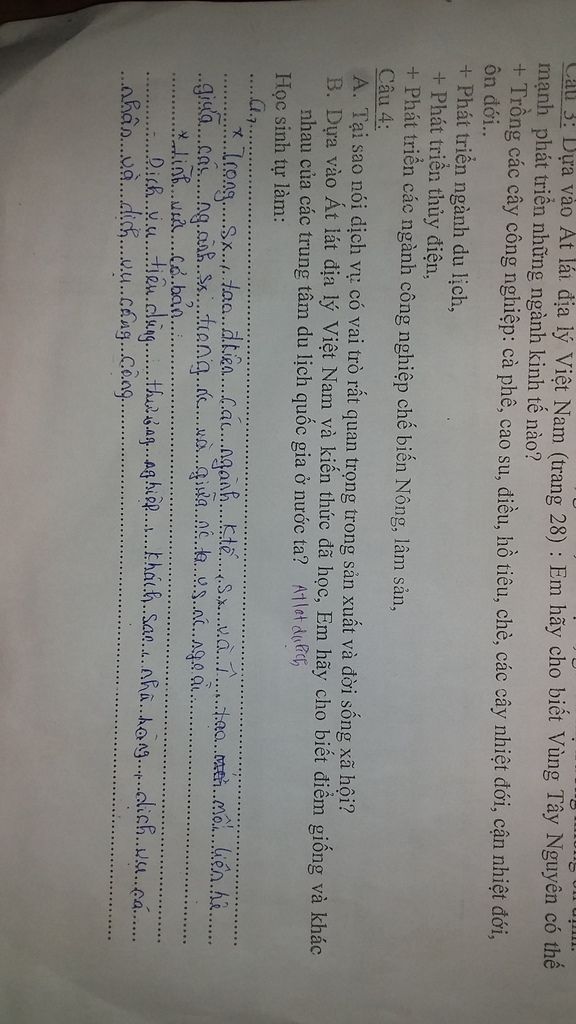 Câu 3: Dựa vào Át lát địa lý Việt Nam (trang 28) : Em hãy cho biết Vùng Tây Nguyên có thế
mạnh phát triển những ngành kinh tế nào?
+ Trồng các cây công nghiệp: cà phê, cao su, điều, hồ tiêu, chè, các cây nhiệt đới, cận nhiệt đới,
ôn đới..
+ Phát triển ngành du lịch,
+ Phát triển thủy điện,
+ Phát triển các ngành công nghiệp chế biến Nông, lâm sản,
Câu 4:
A. Tại sao nói dịch vụ có vai trò rất quan trọng trong sản xuất và đời sống xã hội?
B. Dựa vào Át lát địa lý Việt Nam và kiến thức đã học, Em hãy cho biết điểm giống và khác
nhau của các trung tâm du lịch quốc gia ở nước ta? Atlat du lịch
Học sinh tự làm:
* Trong sx, tạo điều các ngành ktế, sx và tạo mối liên hệ
giữa các ngành sx trong nc và giữa nc ta vs nc ngoài
* lĩnh vực cơ bản:
- Dịch vụ tiêu dùng: thương nghiệp, khách sạn, nhà hàng, dịch vụ cá
nhân và dịch vụ công cộng